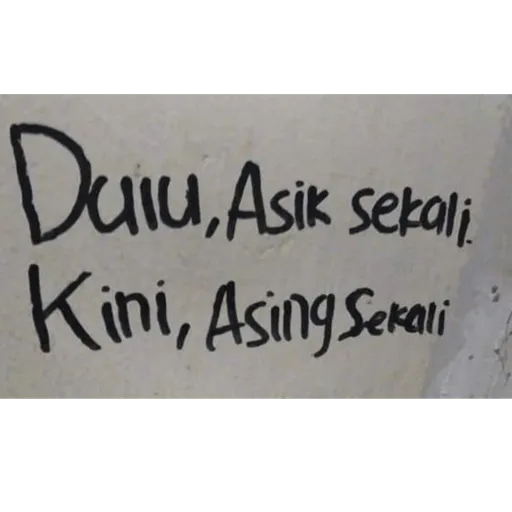 Dulu, Asik sekali.
Kini, Asing sekali